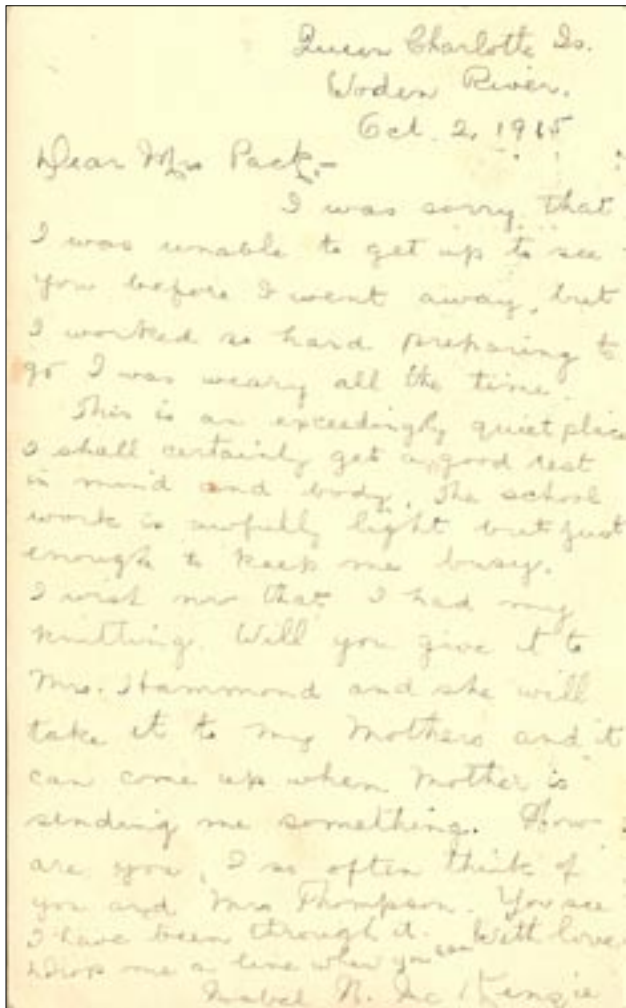 Queen Charlotte Is.
Woden River.
Oct. 2, 1915
Dear Mrs Pack,-
I was sorry that
I was unable to get up to see
you before I went away, but
I worked so hard preparing to
go I was weary all the time.
This is an exceedingly quiet place
I shall certainly get a good rest
in mind and body. The school
work is awfully light but just
enough to keep me busy.
I wish now that I had my
knitting. Will you give it to
Mrs. Hammond and she will
take it to my Mothers and it
can come up when Mother is
sending me something. How
are you, I so often think of
you and Mrs Thompson. You see
I have been through it. With love
Drop me a line when you can
Mabel N. McKenzie